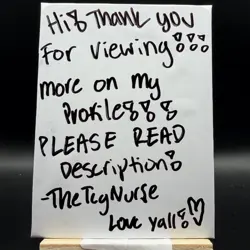 Hi! Thank you
For viewing!!!
more on my
Profile!!!
PLEASE READ
Description!
-TheTcgNurse
Love yall! ♡